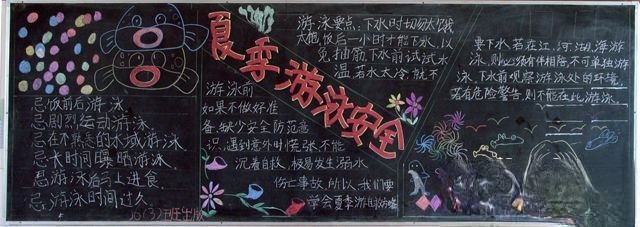 忌饭前后游泳
忌剧烈运动游泳
忌在不熟悉的水域游泳
忌长时间曝晒游泳
忌游泳后马上进食
忌游泳时间过久
班出版
夏季游泳安全
游泳前
如果不做好准
备,缺少安全防范意
识,遇到意外时慌张不能
沉着自救,极易发生溺水
伤亡事故,所以,我们要
学会夏季游泳
游泳要点:下水时切勿太饿
太饱,饭后一小时才能下水,以
免抽筋,下水前试试水
温,若水太冷,就不
要下水,若在江、河、湖、海游
泳,则必须有伴相陪,不可单独游
泳,下水前观察游泳处的环境,
若有危险警告,则不能在此游泳。